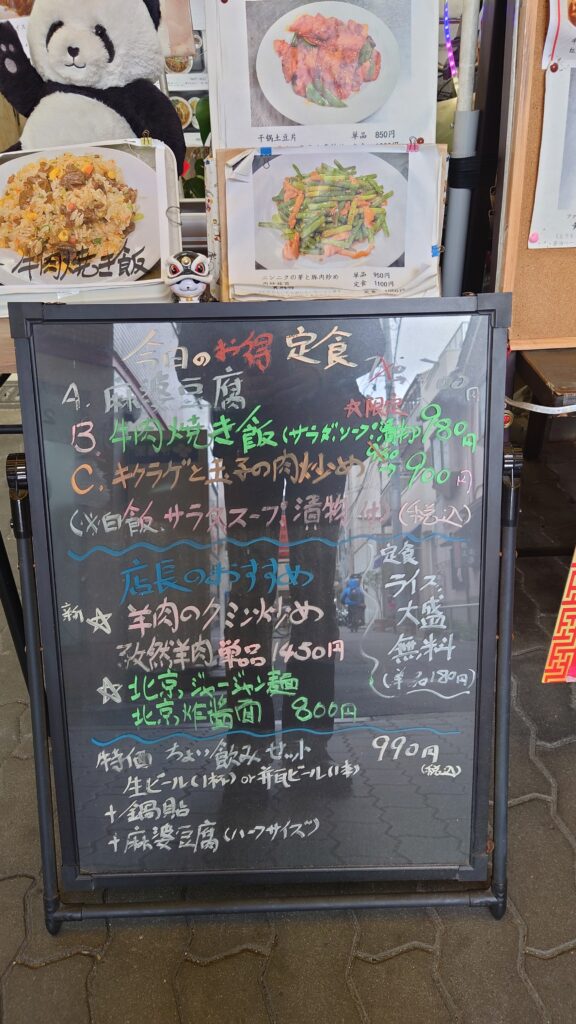 干锅土豆片 単品 850円
ニンニクの芽と豚肉炒め 単品 950円
定食 1100円
牛肉焼き飯
今日のお得 定食
A. 麻婆豆腐
☆限定
B. 牛肉焼き飯(サラダ.スープ.漬物) 980円
C. キクラゲと玉子の肉炒め 980→900円
(※白飯.サラダスープ.漬物.付) (税込)
店長のおすすめ
新☆ 羊肉のクミン炒め
孜然羊肉 単品 1450円
☆ 北京ジャージャン麺
北京炸醤面 800円
定食
ライス
大盛
無料
(単品180円)
特価 ちょい飲みセット 990円
(税込)
生ビール(1杯)or 瓶ビール(1本)
+鍋貼
+麻婆豆腐(ハーフサイズ)